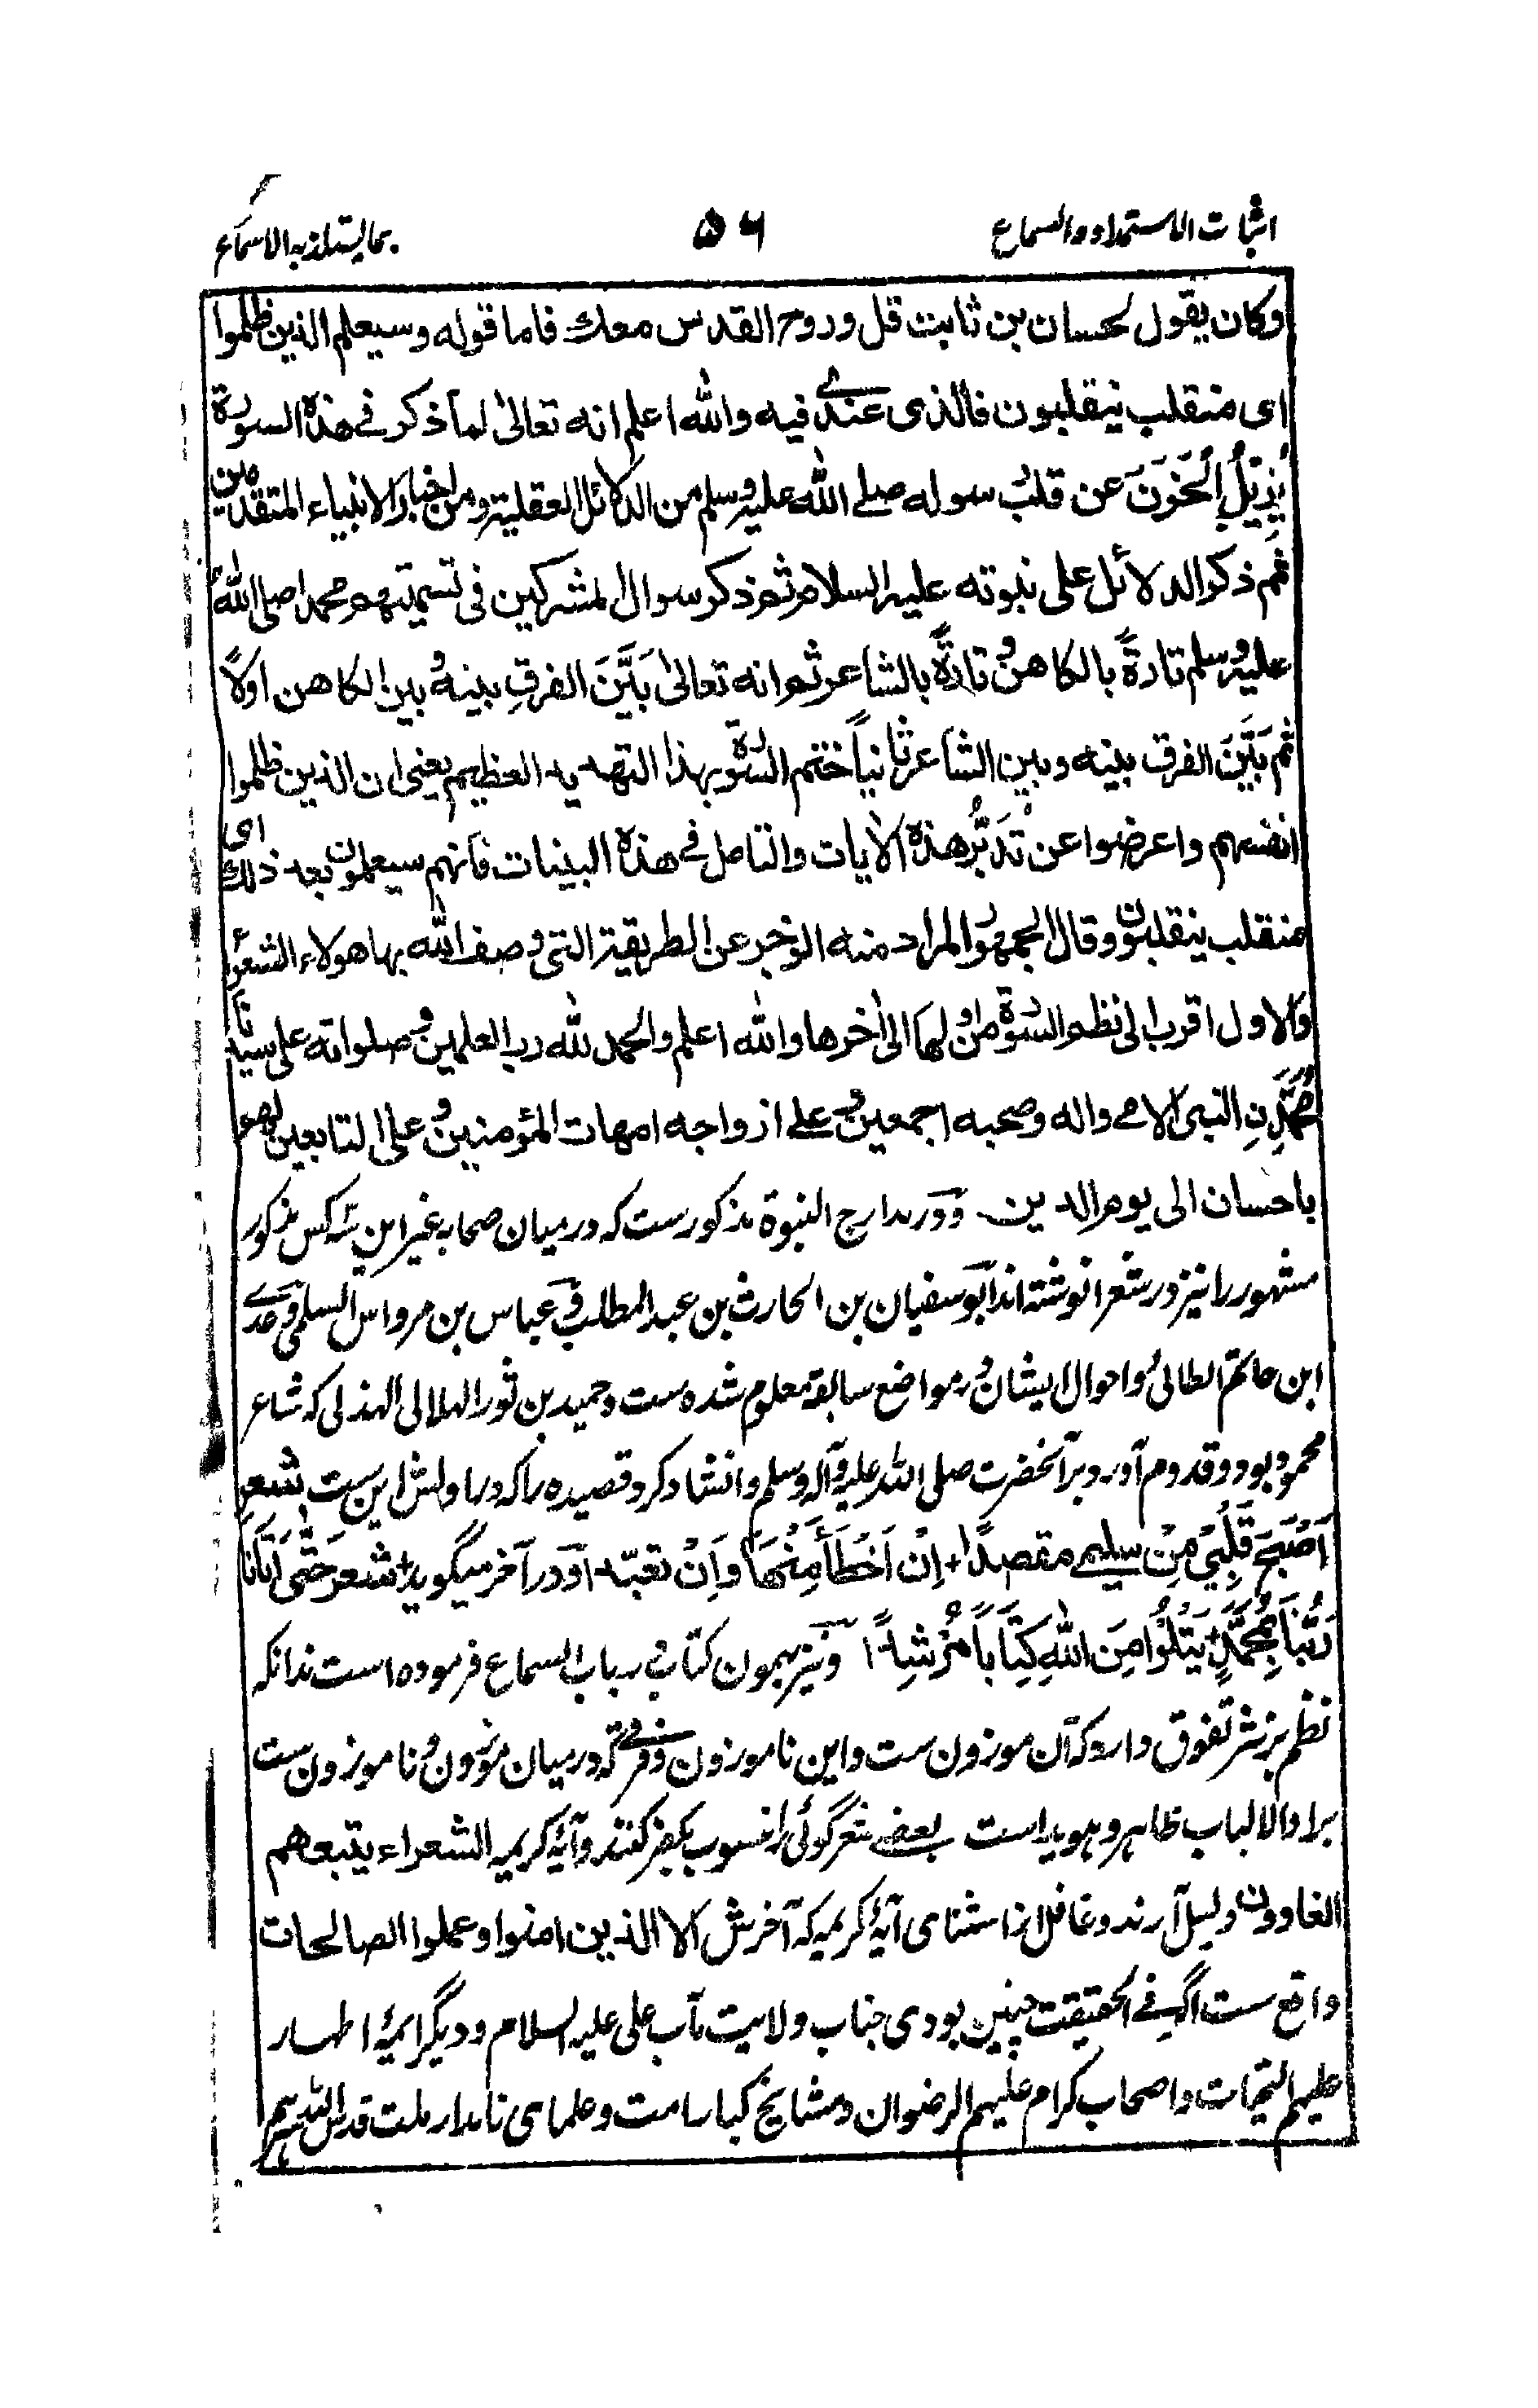 اثبات الاستمداد والسماع ۵۶ بما یستلذ به الاسماع
وكان يقول لحسان بن ثابت قل وروح القدس معك فاما قوله وسيعلم الذين ظلموا
اى منقلب ينقلبون فالذى عندے فيه والله اعلم انه تعالىٰ لما ذكر فے هذه السورة
يُزِيْلُ الْحَزَنَ عن قلب رسوله صلے الله عليه وسلم من الدلائل العقلية ومن اخبار الانبياء المتقدمين
ثم ذكر الدلائل على نبوته عليه السلام ثم ذكر سوال المشركين فى تسميتهم محمدا صلى الله
عليه وسلم تارةً بالكاهن وتارةً بالشاعر ثم انه تعالىٰ بَيَّنَ الفرقِ بينه وبين الكاهن اولاً
ثم بَيَّنَ الفرق بينه وبين الشاعر ثانياً ختم السورة بهذا التهديد العظيم يعنى ان الذين ظلموا
انفسهم واعرضوا عن تَدَبُّرِ هذه الآيات والتامل فے هذه البينات فانهم سيعلمون بعد ذلك اى
منقلب ينقلبون وقال الجمهور المراد منه الزجر عن الطريقة التى وصف الله بها هولاء الشعراء
والاول اقرب الى نظم السورة من اولها الى اٰخرها والله اعلم والحمد لله رب العلمين وصلواته على سيدنا
مُحَمَّدِنِ النبى الامے واله وصحبه اجمعين وعلے ازواجه امهات المؤمنين وعلى التابعين لهم
باحسان الى يوم الدين ودر مدارج النبوة مذکورست که درمیان صحابه غیر این سه کس مذکور
مشهور را نیز در شعرا نوشته اند ابو سفیان بن الحارث بن عبد المطلب و عباس بن مرداس السلمی و عدے
ابن حاتم الطائی و احوال ایشان در مواضع سابقه معلوم شده ست و حمید بن ثور الهلالی الهذلی که شاعر
محمود بود و قدوم آورد بر آنحضرت صلی الله علیه وآله وسلم و انشاد کرد قصیده را که در اولش این ست شعر
اَصْبَحَ قَلْبِيْ مِنْ سليمے مقصدًا + اِنْ اَخْطَأَ مِنْهَا وَاِنْ تعبّد + و در آخر میگوید + شعر حَتّٰى اَتَانَا
رَبُّنَا بِمُحَمَّدٍ + يَتْلُوْا مِنَ اللهِ كِتَابًا مُرْشِدًا ونیز همون کتاب در باب السماع فرموده است بدانکه
نظم بر نثر تفوق دارد که آن موزون ست و این ناموزون و فرقے که درمیان موزون و ناموزون ست
بر اولالالباب ظاهر و هویدا است بعضے شعر گوئی را منسوب بکفر کنند و آیهٔ کریمه الشعراء يتبعهم
الغاوون دلیل آرند و غافل از استثنای آیهٔ کریمه که آخرش الا الذين امنوا وعملوا الصالحات
واقع ست اگر فے الحقیقت چنین بودی جناب ولایت مآب علی علیه السلام و دیگر ائمهٔ اطهار
علیهم التحیات و اصحاب کرام علیهم الرضوان و مشایخ کبار امت و علمای نامدار ملت قدس الله سرهم